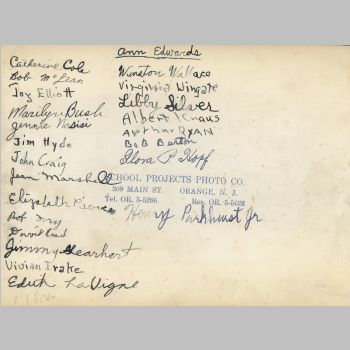 Ann Edwards
Catherine Cole
Bob McLean
Joy Elliott
Marilyn Bush
Jennie Nasisi
Jim Hyde
John Craig
Jean Marshall
Elizabeth Pierce
Bob
David
Jimmy Gearhart
Vivian Trake
Edith LaVigne
Winston Wallace
Virginia Wingate
Libby Silver
Albert Knaus
Arthur Ryan
Bob Burton
Flora P. Hopf
SCHOOL PROJECTS PHOTO CO.
509 MAIN ST. ORANGE, N. J.
Tel. OR. 5-5286 Res. OR. 5-5622
Henry Parkhurst Jr